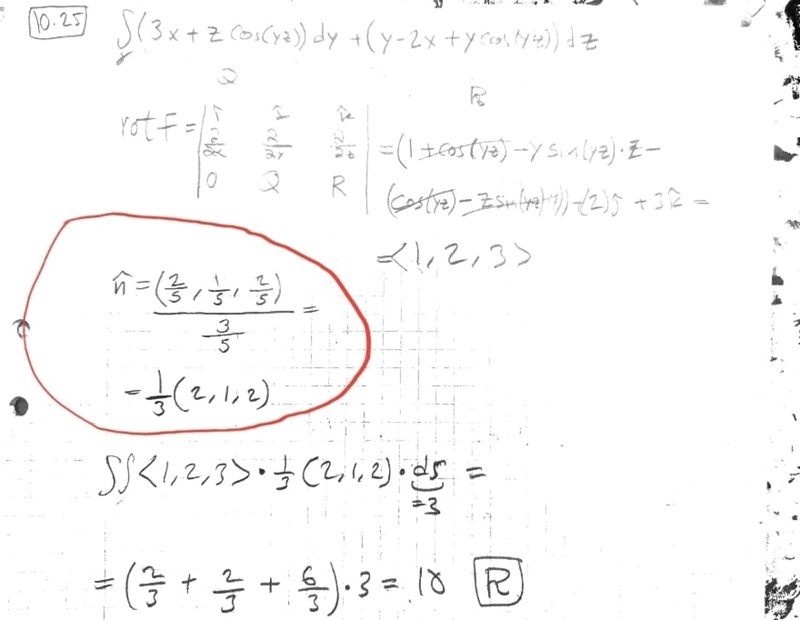 10.25
∫γ (3x + z cos(yz)) dy + (y - 2x + y cos(yz)) dz
Q R
rot F = | î ĵ k̂ |
| ∂/∂x ∂/∂y ∂/∂z | = (1 + cos(yz) - y sin(yz)·z -
| 0 Q R | (cos(yz) - z sin(yz)·y)) - (2)ĵ + 3k̂ =
= <1, 2, 3>
n̂ = (2/5, 1/5, 2/5) / (3/5) =
= 1/3 (2, 1, 2)
∫∫ <1, 2, 3> · 1/3 (2, 1, 2) · dS =
= 3
= (2/3 + 2/3 + 6/3) · 3 = 10 R